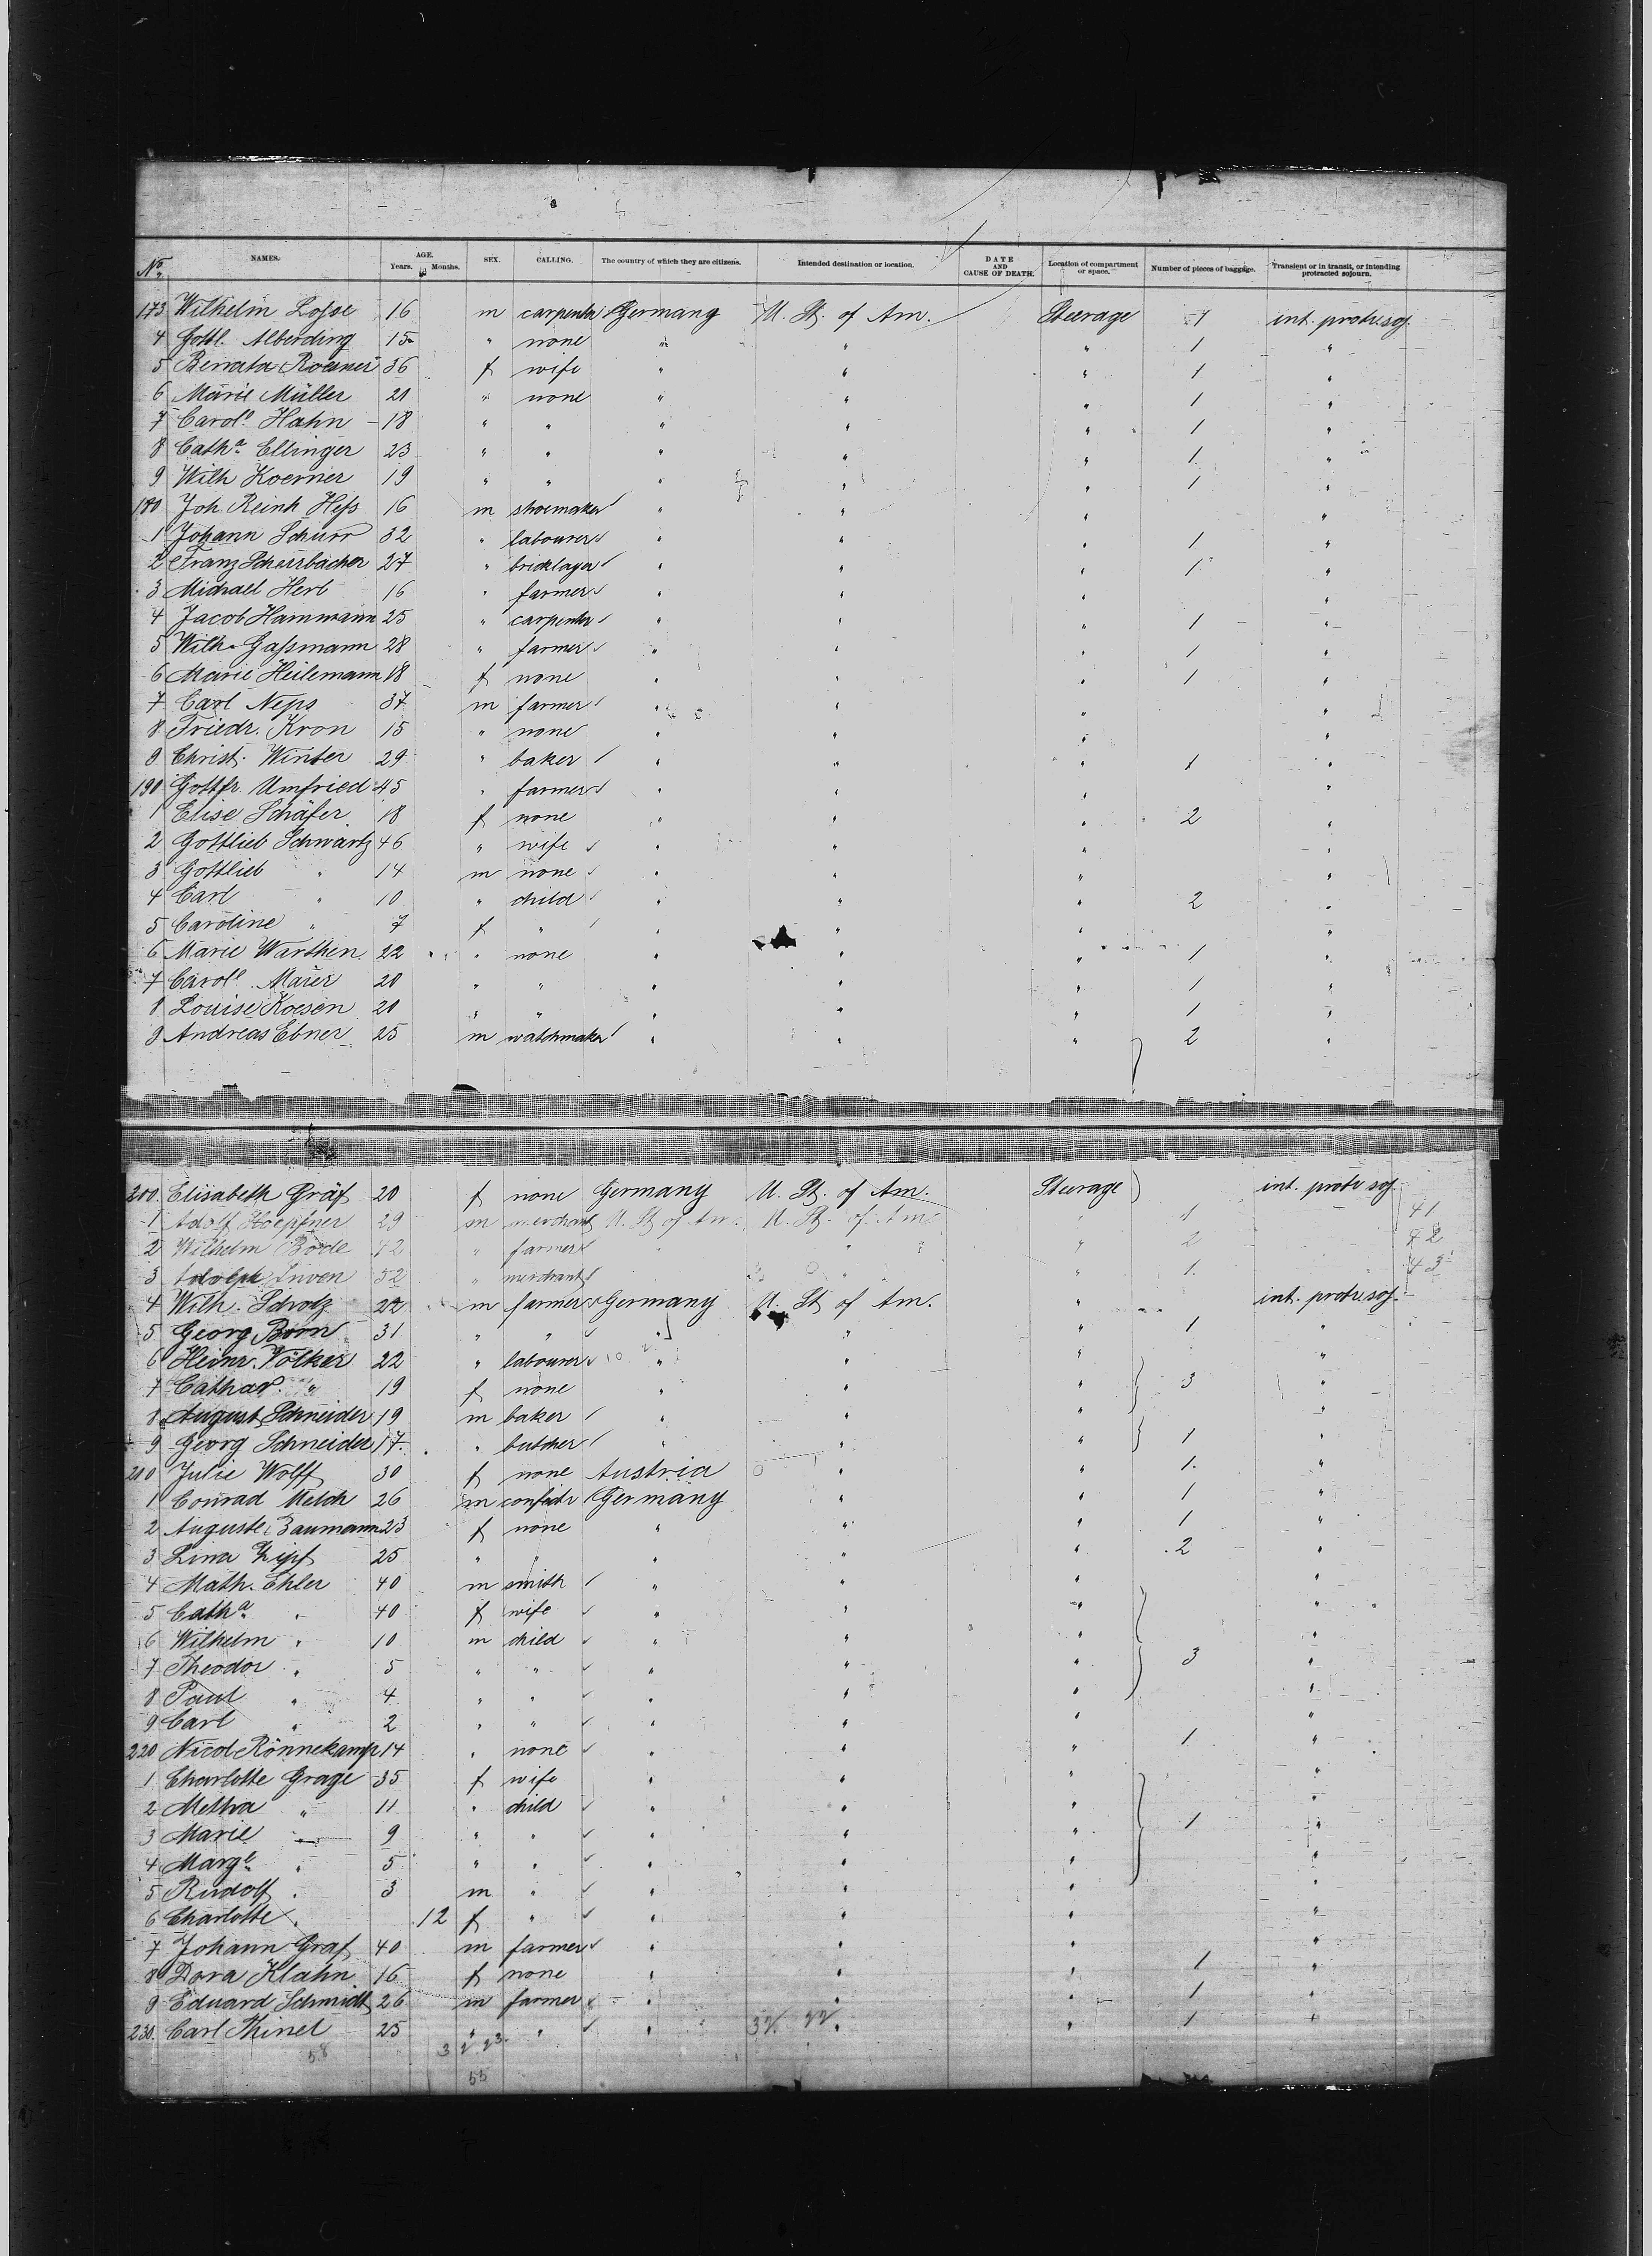 No. NAMES. AGE. Years. in Months. SEX. CALLING. The country of which they are citizens. Intended destination or location. DATE AND CAUSE OF DEATH. Location of compartment or space. Number of pieces of baggage. Transient or in transit, or intending protracted sojourn.
173 Wilhelm Losse 16 m carpenter Germany U. St. of Am. Steerage 1 int. protr. soj.
4 Gottl. Alberding 15 " none " " " 1 "
5 Renata Roesner 36 f wife " " " 1 "
6 Marie Müller 21 " none " " " 1 "
7 Carole Hahn 18 " " " " " 1 "
8 Catha Ellinger 23 " " " " " 1 "
9 Wilh Koerner 19 " " " " " 1 "
180 Joh. Reinh Hess 16 m shoemaker " " " "
1 Johann Schurr 32 " labourer " " " 1 "
2 Franz Scheirbacher 27 " bricklayer " " " 1 "
3 Michael Herb 16 " farmer " " " "
4 Jacob Hammann 25 " carpenter " " " 1 "
5 Wilh. Gassmann 28 " farmer " " " 1 "
6 Marie Heilemann 18 f none " " " 1 "
7 Carl Neps 37 m farmer " " " "
8 Friedr. Kron 15 " none " " " "
9 Christ. Winter 29 " baker " " " 1 "
190 Gottfr. Umfried 45 " farmer " " " "
1 Elise Schäfer 18 f none " " " 2 "
2 Gottlieb Schwartz 46 " wife " " " "
3 Gottlieb " 14 m none " " " "
4 Carl " 10 " child " " " 2 "
5 Caroline " 7 f " " " " "
6 Marie Warthen 22 " none " " " 1 "
7 Carole Maier 20 " " " " " 1 "
8 Louise Koesen 20 " " " " " 1 "
9 Andreas Ebner 25 m watchmaker " " " 2 "
200. Elisabeth Gräf 20 f none Germany U. St. of Am. Steerage int. protr. soj.
1 Adolf Hoepfner 29 m merchant U. St of Am. U. St. of Am " 1 41
2 Wilhelm Bode 42 " farmer " " 2 42
3 Adolph 52 " merchant " " 1 43
4 Wilh. Scholz 22 m farmer Germany U. St of Am. " int. protr. soj.
5 Georg Born 31 " " " " " 1 "
6 Heinr. Völker 22 " labourer " " " "
7 Cathar. " 19 f none " " " 3 "
8 August Schneider 19 m baker " " " "
9 Georg Schneider 17 " butcher " " " 1 "
210 Julie Wolff 30 f none Austria " " 1 "
1 Conrad Melch 26 m confectr Germany " " 1 "
2 Auguste Baumann 23 f none " " " 1 "
3 Lina Zipf 25 " " " " " 2 "
4 Math. Ehler 40 m smith " " " "
5 Catha " 40 f wife " " " "
6 Wilhelm " 10 m child " " " "
7 Theodor " 5 " " " " " 3 "
8 Paul " 4 " " " " " "
9 Carl " 2 " " " " " "
220 Nicol Rönnekamp 14 " none " " " 1 "
1 Charlotte Grage 35 f wife " " " "
2 Metha " 11 " child " " " "
3 Marie " 9 " " " " " 1 "
4 Marge " 5 " " " " " "
5 Rudolf " 3 m " " " " "
6 Charlotte " 12 f " " " " "
7 Johann Graf 40 m farmer " " " "
8 Dora Klahn 16 f none " " " 1 "
9 Eduard Schmidt 26 m farmer " " " 1 "
230. Carl Thinel 25 " " " " " 1 "
58 3
55